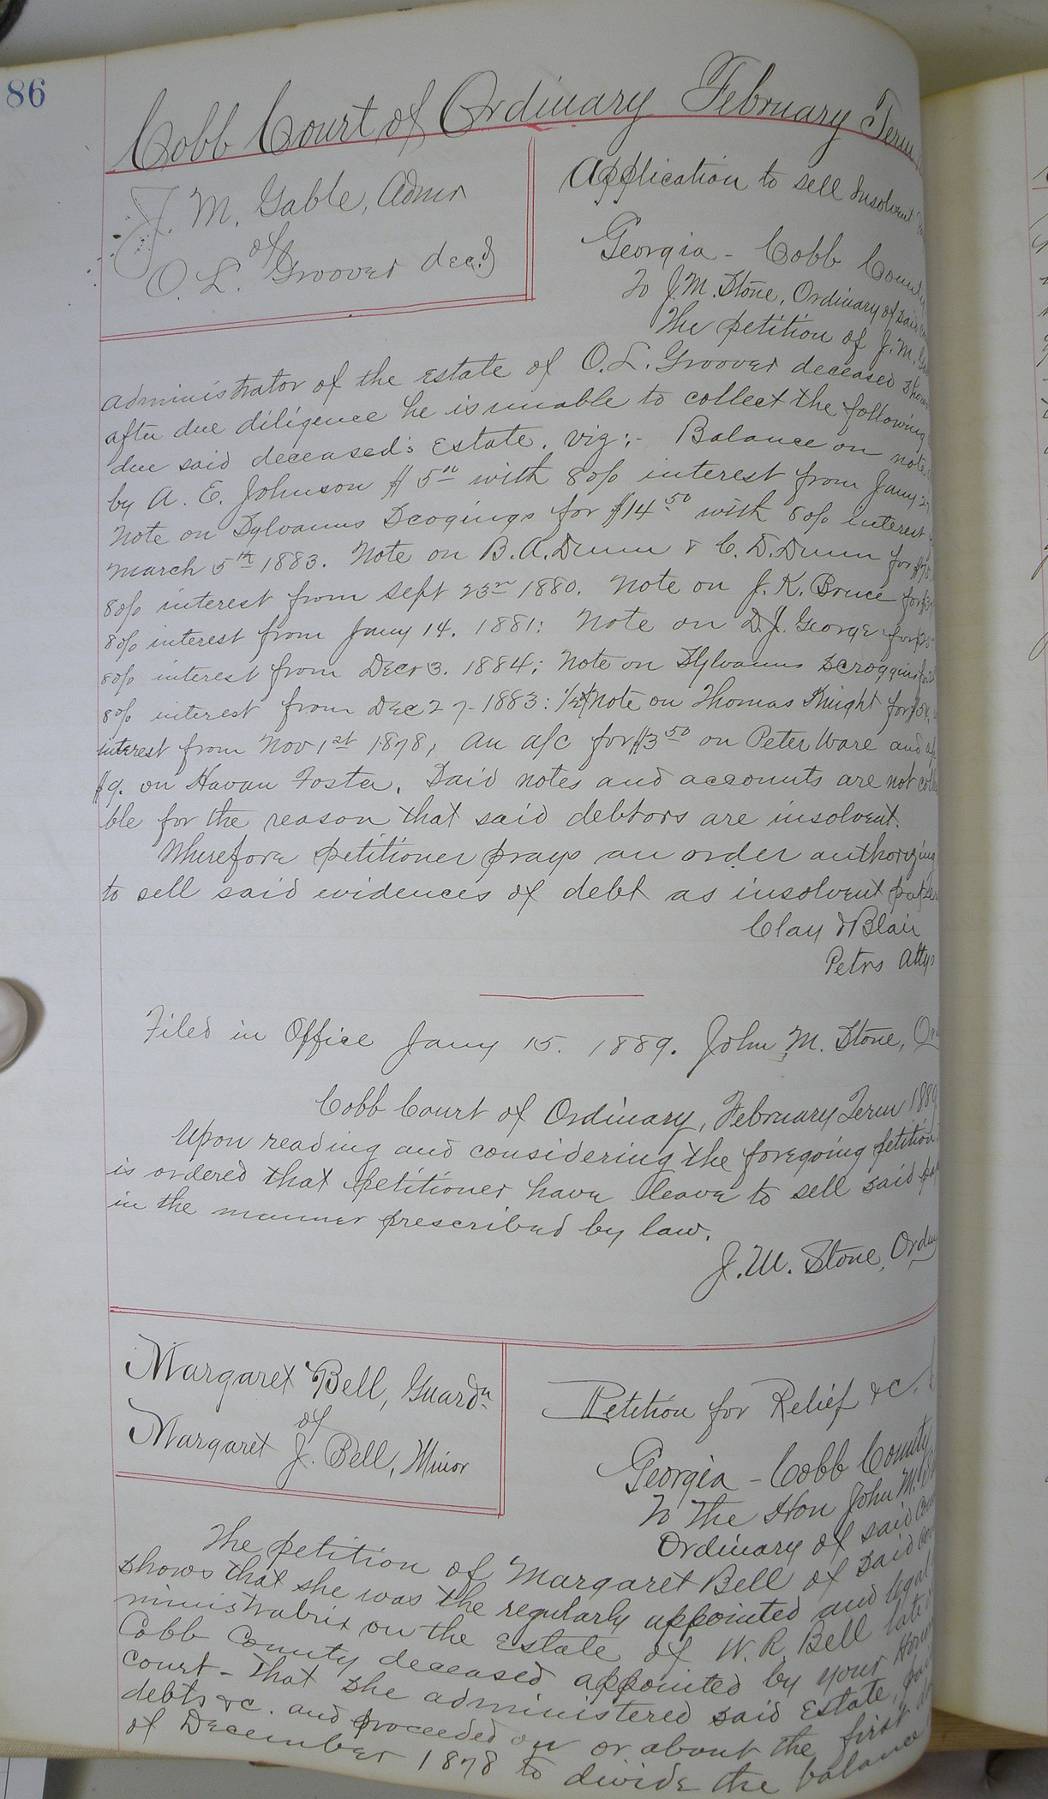 86
Cobb Court of Ordinary February Term
J. M. Gable, Admr
of
O. L. Groover decd
Application to sell Insolvent
Georgia - Cobb County
To J. M. Stone, Ordinary of said
The petition of J. M.
administrator of the Estate of O. L. Groover deceased shows
after due diligence he is unable to collect the following
due said deceased's Estate. viz:- Balance on note
by A. E. Johnson $5 00 with 8 0/0 interest from Jany
Note on Sylvanus Scogings for $14 50 with 8 0/0 interest
March 5th 1883. Note on B. A. Dunn & C. D. Dunn for
8 0/0 interest from Sept 23rd 1880. Note on J. K. Bruce for
8 0/0 interest from Jany 14. 1881: Note on D. J. George for
8 0/0 interest from Decr 3. 1884; Note on Sylvanus Scroggins for
8 0/0 interest from Dec 27- 1883: Note on Thomas Knight for
interest from Nov 1st 1878, An a/c for $3 50 on Peter Ware and
$9. on Havan Foster. Said notes and accounts are not
ble for the reason that said debtors are insolvent.
Wherefore petitioner prays an order authorizing
to sell said evidences of debt as insolvent
Clay & Blair
Petrs Attys
Filed in Office Jany 15. 1889. John M. Stone,
Cobb Court of Ordinary, February Term 1889
Upon reading and considering the foregoing petition
is ordered that petitioner have leave to sell said
in the manner prescribed by law.
J. M. Stone,
Margaret Bell, Guardn
of
Margaret J. Bell, Minor
Petition for Relief &c.
Georgia - Cobb County
To The Hon John M.
Ordinary of said
The petition of Margaret Bell of said
shows that she was the regularly appointed and legal
ministratrix on the Estate of W. R. Bell late
Cobb County deceased appointed by your
court - That she administered said Estate,
debts &c. and proceeded on or about the first
of December 1878 to divide the balance